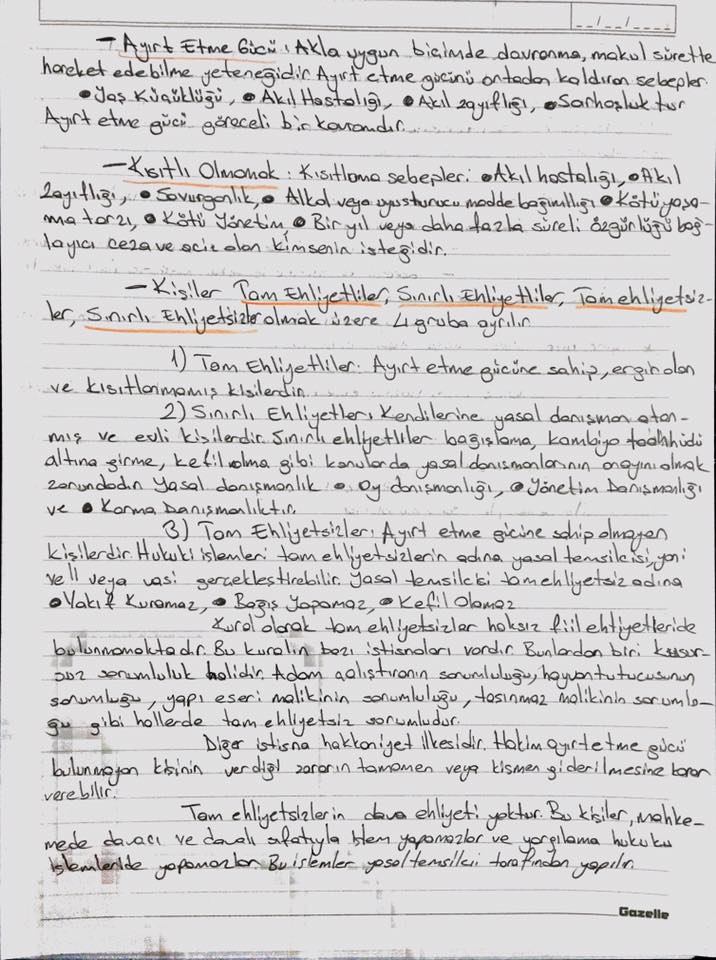 __/__/__
- Ayırt Etme Gücü: Akla uygun biçimde davranma, makul sürette
hareket edebilme yeteneğidir Ayırt etme gücünü ortadan kaldıran sebepler.
• Yaş Küçüklüğü, • Akıl Hastalığı, • Akıl zayıflığı, • Sarhoşluk tur
Ayırt etme gücü göreceli bir kavramdır.
- Kısıtlı Olmamak: Kısıtlama sebepleri • Akıl hastalığı, • Akıl
zayıflığı, • Savurganlık, • Alkol veya uyuşturucu madde bağımlılığı • Kötü yaşa-
ma tarzı, • Kötü Yönetim, • Bir yıl veya daha fazla süreli özgürlüğü bağ-
layıcı ceza ve aciz olan kimsenin isteğidir.
- Kişiler Tam Ehliyetliler, Sınırlı Ehliyetliler, Tam ehliyetsiz-
ler, Sınırlı Ehliyetsizler olmak üzere 4 gruba ayrılır
1) Tam Ehliyetliler: Ayırt etme gücüne sahip, ergin olan
ve kısıtlanmamış kişilerdir.
2) Sınırlı Ehliyetler: Kendilerine yasal danışman atan-
mış ve evli kişilerdir. Sınırlı ehliyetliler bağışlama, kambiyo taahhüdü
altına girme, kefil olma gibi konularda yasal danışmanlarının onayını almak
zorundadır Yasal danışmanlık • Oy danışmanlığı, • Yönetim Danışmanlığı
ve • Karma Danışmanlıktır.
3) Tam Ehliyetsizler: Ayırt etme gücine sahip olmayan
kişilerdir. Hukuki işlemleri tam ehliyetsizlerin adına yasal temsilcisi, yani
veli veya vasi gerçekleştirebilir. Yasal temsilcisi tam ehliyetsiz adına
• Vakıf Kuramaz, • Bağış Yapamaz, • Kefil Olamaz
Kural olarak tam ehliyetsizler haksız fiil ehtiyetleride
bulunmamaktadır. Bu kuralın bazı istisnaları vardır. Bunlardan biri kusur-
suz sorumluluk halidir. Adam çalıştıranın sorumluluğu, hayvan tutucusunun
sorumluğu, yapı eseri malikinin sorumluluğu, taşınmaz malikinin sorumlu-
ğu gibi hallerde tam ehliyetsiz sorumludur.
Diğer istisna hakkaniyet ilkesidir. Hakim ayırt etme gücü
bulunmayan kişinin verdiği zararın tamamen veya kısmen giderilmesine karar
verebilir.
Tam ehliyetsizlerin dava ehliyeti yoktur. Bu kişiler, mahke-
mede davacı ve davalı sıfatıyla işlem yapamazlar ve yargılama hukuku
işlemleride yapamazlar. Bu işlemler yasal temsilci tarafından yapılır.
Gazelle